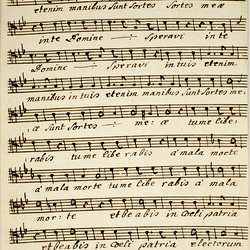 etenim manibus sunt sortes sortes meæ
in te Domine Speravi in te
Domine Speravi in tuis etenim
manibus in tuis etenim manibus sunt sortes me:
æ sunt sortes me: æ tu me libe
rabis tu me libe rabis â mala morte
â mala morte tu me libe rabis â mala
mor: te et beabis in Cœli patria
et beabis in Cœli patria electorum